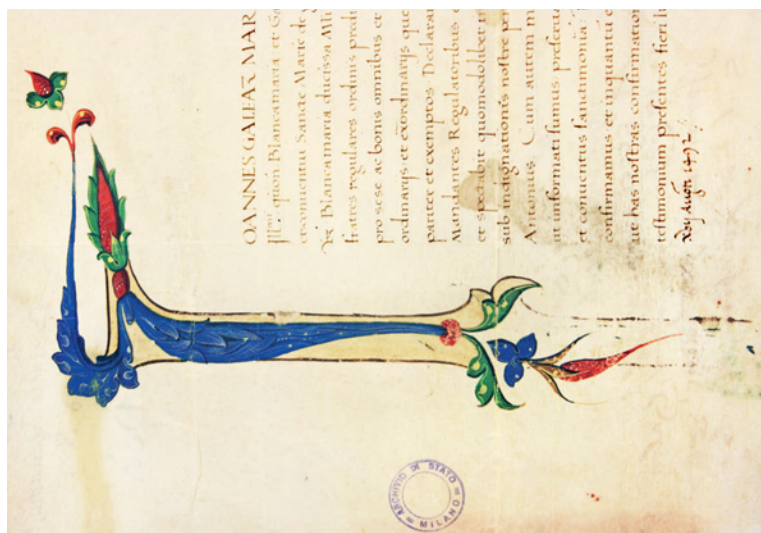 OANNES GALEAZ MAR
quon Blancamaria et Ga
conuentui Sancte Marie de
Blancamaria ducissa Mli
fratres regulares ordinis predi
pro sese ac bonis omnibus et
ordinarijs et exordinarijs que
pariter et exemptos Declaran
Mandantes Regulatoribus e
et spectabit quomodolibet in
sub indignationis nostre pen
Antonius Cum autem m
ut informati sumus preseru
et conuentus sanctimonia
confirmamus et inquantu e
ut has nostras confirmation
testimonium presentes fieri iu
1492
ARCHIVIO DI STATO = MILANO =